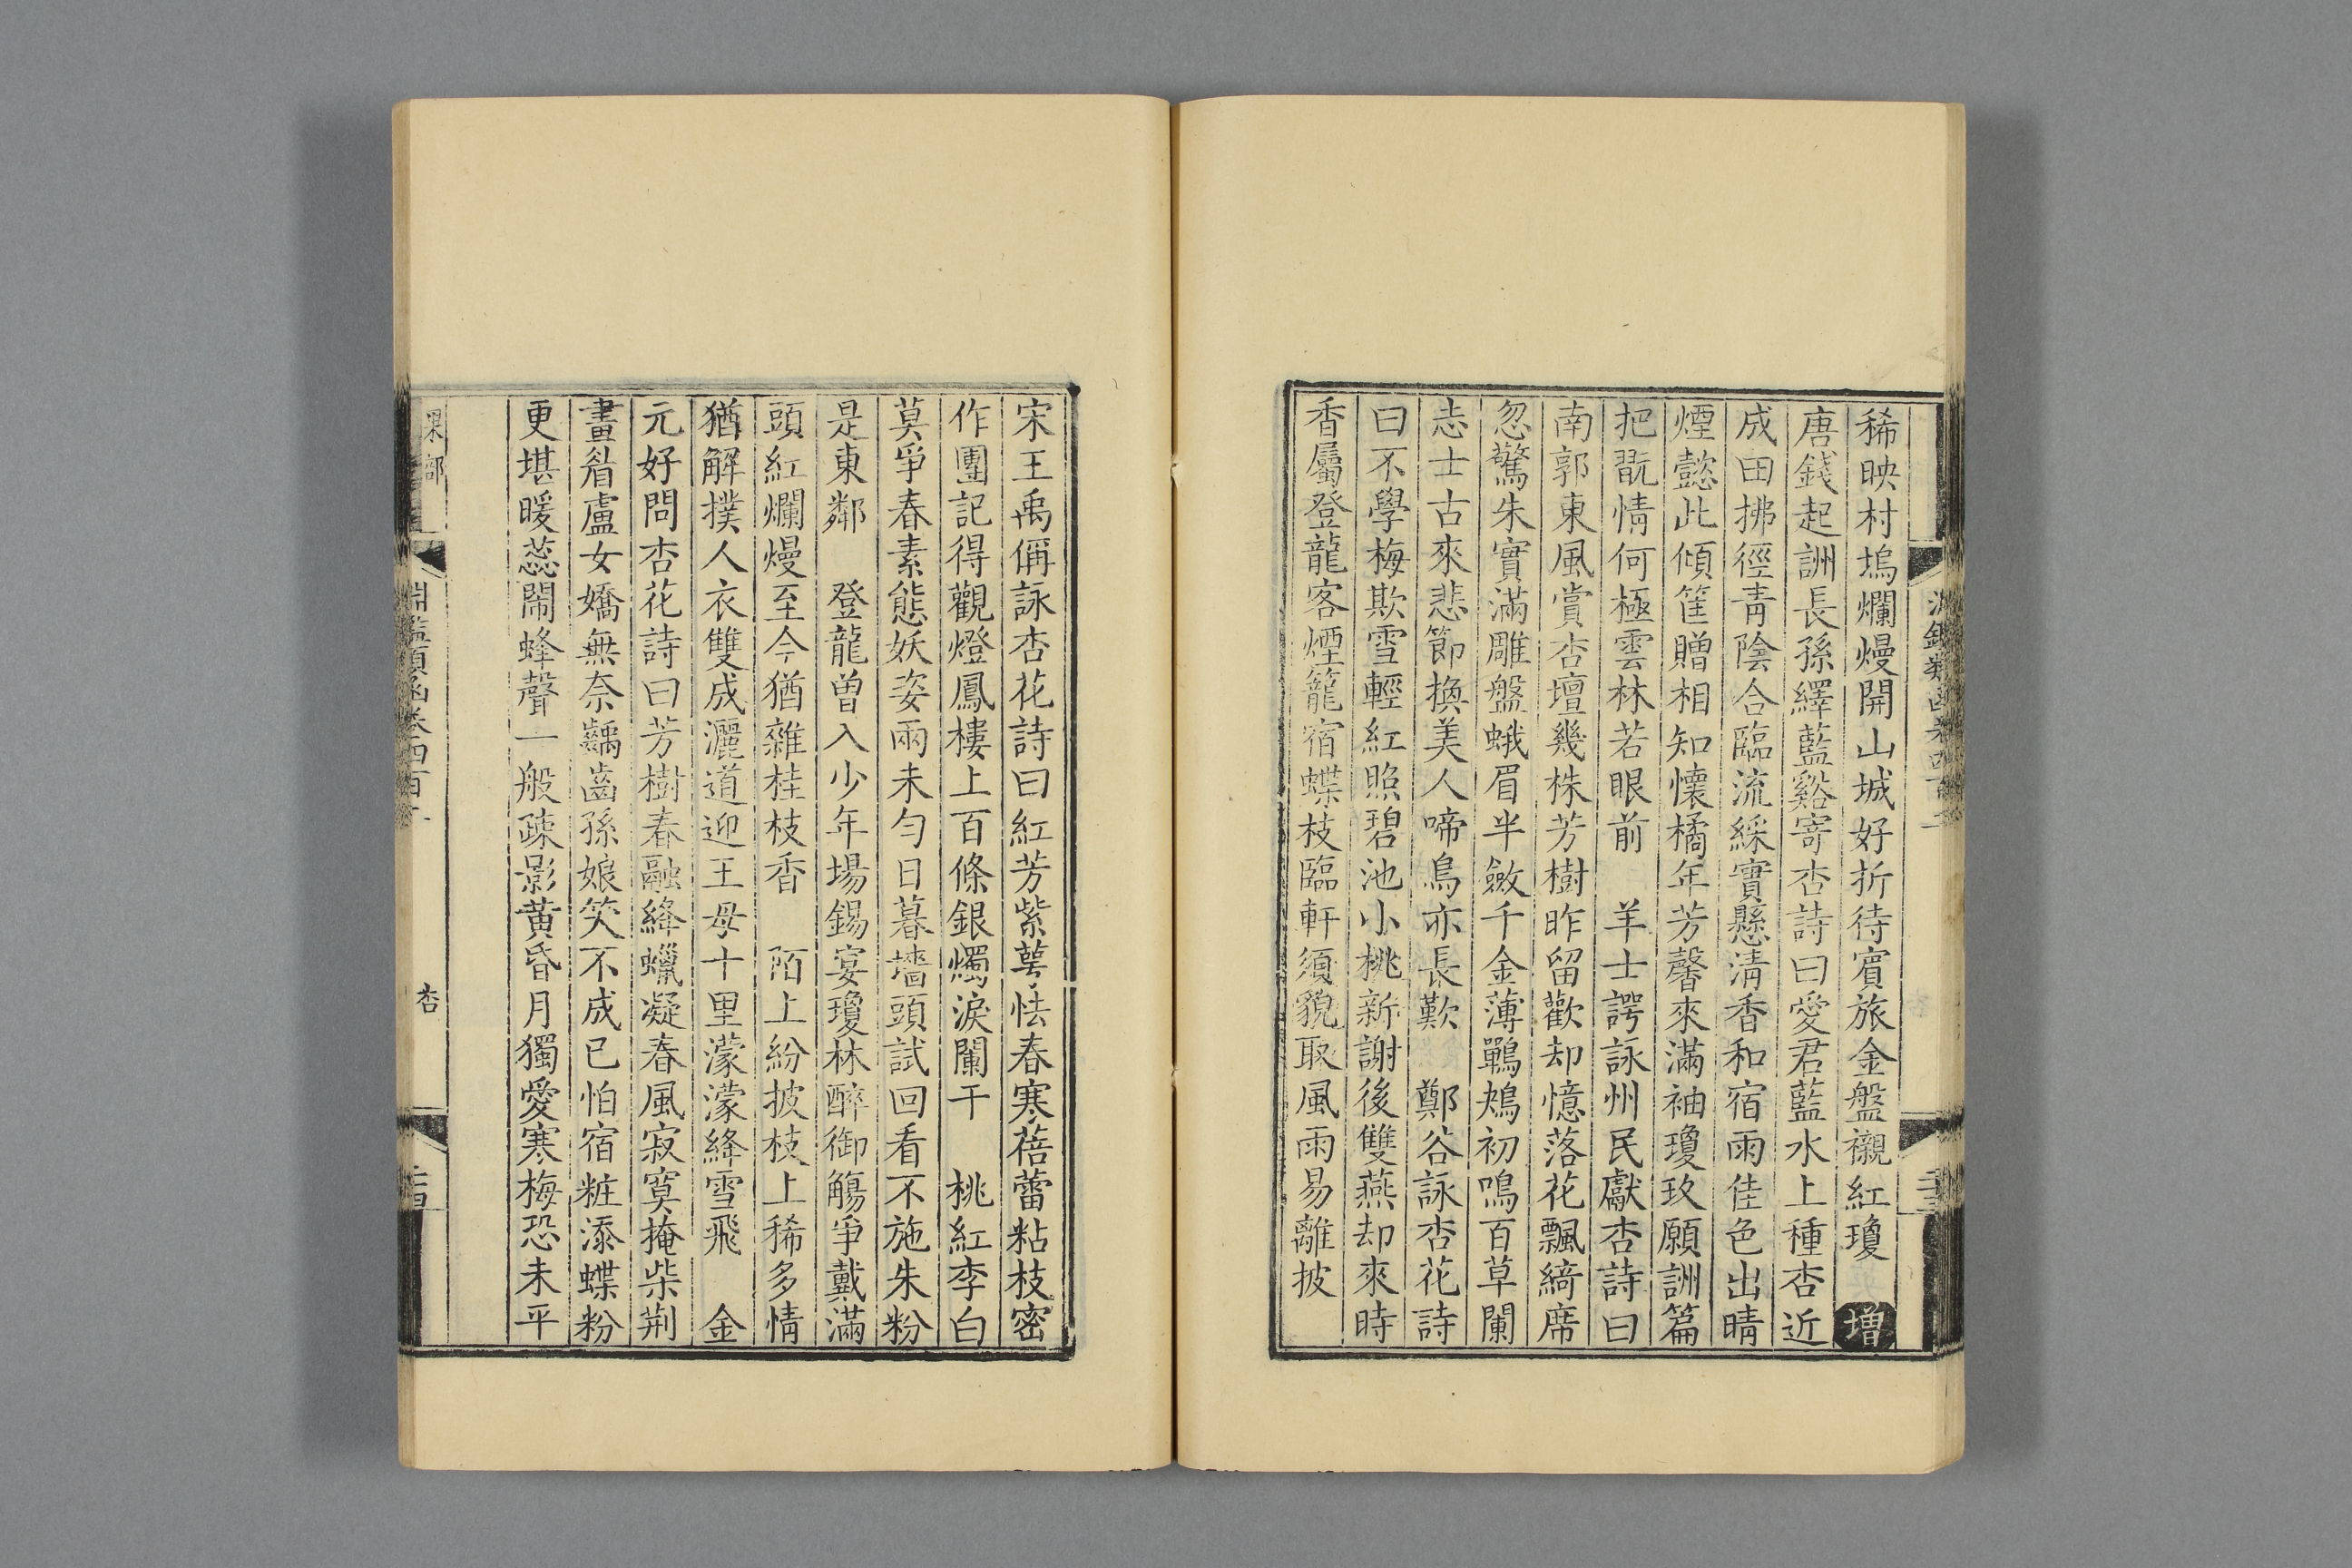 稀映村塢爛熳開山城好折待賓旅金盤襯紅瓊 增
唐錢起詶長孫繹藍谿寄杏詩曰愛君藍水上種杏近
成田拂徑青陰合臨流綵實懸清香和宿雨佳色出晴
煙懿此傾筐贈相知懷橘年芳馨來滿袖瓊玖願詶篇
把翫情何極雲林若眼前 羊士諤詠州民獻杏詩曰
南郭東風賞杏壇幾株芳樹昨留歡却憶落花飄綺席
忽驚朱實滿雕盤蛾眉半斂千金薄鶗鴂初鳴百草闌
志士古來悲節換美人啼鳥亦長歎 鄭谷詠杏花詩
曰不學梅欺雪輕紅照碧池小桃新謝後雙燕却來時
香屬登龍客煙籠宿蝶枝臨軒須貌取風雨易離披
宋王禹偁詠杏花詩曰紅芳紫萼怯春寒蓓蕾粘枝密
作團記得觀燈鳳樓上百條銀燭淚闌干 桃紅李白
莫爭春素態妖姿兩未勻日暮墻頭試回看不施朱粉
是東鄰 登龍曾入少年場錫宴瓊林醉御觴爭戴滿
頭紅爛熳至今猶雜桂枝香 陌上紛披枝上稀多情
猶解撲人衣雙成灑道迎王母十里濛濛絳雪飛 金
元好問杏花詩曰芳樹春融絳蠟凝春風寂寞掩柴荆
畫眉盧女嬌無奈齲齒孫娘笑不成已怕宿粧添蝶粉
更堪暖蕊鬧蜂聲一般疎影黄昏月獨愛寒梅恐未平
果部
淵鑑類函卷四百
杏